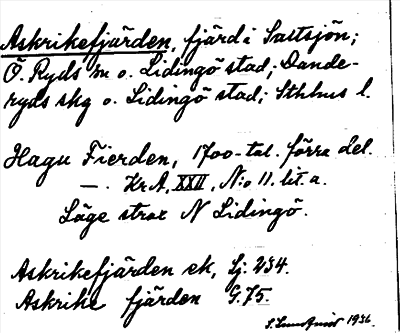 Askrikefjärden, fjärd i Saltsjön;
Ö. Ryds sn o. Lidingö stad; Dande-
ryds skg o. Lidingö stad; Sthlms l.
Hagu Fierden, 1700-tal. förra del.
—. Kr A, XXII, N:o 11. lit. a.
Läge strax N Lidingö.
Askrikefjärden ek, Lj. 234.
Askrike fjärden G. 75.
1936.